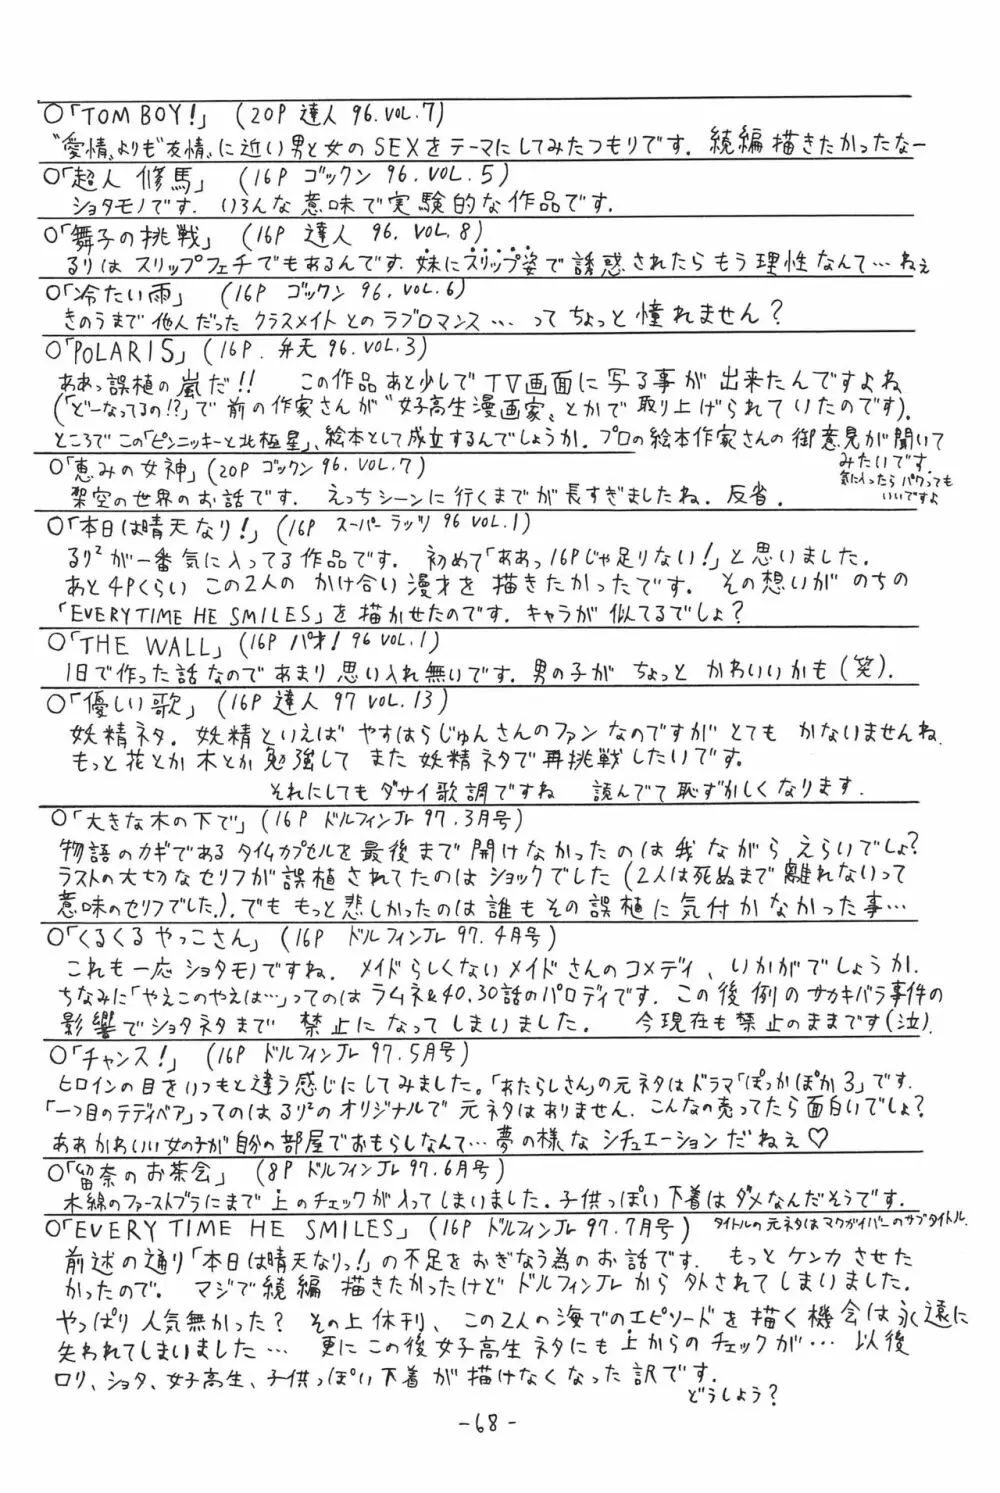 ○「TOM BOY!」 (20P 達人 96. VOL.7)
“愛情„よりも“友情„に近い男と女のSEXをテーマにしてみたつもりです. 続編描きたかったなー
○「超人 修馬」 (16P ゴックン 96. VOL.5)
ショタモノです. いろんな意味で実験的な作品です.
○「舞子の挑戦」 (16P 達人 96. VOL.8)
るりはスリップフェチでもあるんです. 妹にスリップ姿で誘惑されたらもう理性なんて…ねぇ
○「冷たい雨」 (16P ゴックン 96. VOL.6)
きのうまで他人だったクラスメイトとのラブロマンス…ってちょっと憧れません?
○「POLARIS」(16P. 弁天 96. VOL.3)
ああっ誤植の嵐だ!! この作品あと少しでTV画面に写る事が出来たんですよね
(「どーなってるの!?」で前の作家さんが“女子高生漫画家„とかで取り上げられていたのです).
ところでこの「ピンニッキーと北極星」、絵本として成立するんでしょうか. プロの絵本作家さんの御意見が聞いて
みたいです.
気に入ったらパクっても
いいですよ
○「恵みの女神」(20P ゴックン 96. VOL.7)
架空の世界のお話です. えっちシーンに行くまでが長すぎましたね. 反省.
○「本日は晴天なり!」(16P スーパーラッツ 96 VOL.1)
るり²が一番気に入ってる作品です. 初めて「ああっ16Pじゃ足りない!」と思いました.
あと4Pくらいこの2人のかけ合い漫才を描きたかったです. その想いがのちの
「EVERY TIME HE SMILES」を描かせたのです. キャラが似てるでしょ?
○「THE WALL」(16P パオ! 96 VOL.1)
1日で作った話なのであまり思い入れ無いです. 男の子がちょっとかわいいかも(笑).
○「優しい歌」 (16P 達人 97 VOL.13)
妖精ネタ. 妖精といえばやすはらじゅんさんのファンなのですがとてもかないませんね.
もっと花とか木とか勉強してまた妖精ネタで再挑戦したいです.
それにしてもダサイ歌詞ですね 読んでて恥ずかしくなります.
○「大きな木の下で」(16P ドルフィンJr. 97. 3月号)
物語のカギであるタイムカプセルを最後まで開けなかったのは我ながらえらいでしょ?
ラストの大切なセリフが誤植されてたのはショックでした(2人は死ぬまで離れないって
意味のセリフでした.). でももっと悲しかったのは誰もその誤植に気付かなかった事…
○「くるくるやっこさん」(16P ドルフィンJr. 97. 4月号)
これも一応ショタモノですね. メイドらしくないメイドさんのコメディ、いかがでしょうか.
ちなみに「やえこのやえは…」ってのはラムネ&40.30話のパロディです. この後例のサカキバラ事件の
影響でショタネタまで禁止になってしまいました. 今現在も禁止のままです(泣).
○「チャンス!」 (16P ドルフィンJr. 97. 5月号)
ヒロインの目をいつもと違う感じにしてみました。「あたらしさん」の元ネタはドラマ「ぽっかぽか3」です.
「一つ目のテディベア」ってのはるり²のオリジナルで元ネタはありません. こんなの売ってたら面白いでしょ?
ああかわいい女の子が自分の部屋でおもらしなんて…夢の様なシチュエーションだねぇ♡
○「留奈のお茶会」 (8P ドルフィンJr. 97. 6月号)
木綿のファーストブラにまで上のチェックが入ってしまいました. 子供っぽい下着はダメなんだそうです.
○「EVERY TIME HE SMILES」(16P ドルフィンJr. 97. 7月号) タイトルの元ネタはマクガイバーのサブタイトル.
前述の通り「本日は晴天なりっ!」の不足をおぎなう為のお話です. もっとケンカさせた
かったので。 マジで続編描きたかったけどドルフィンJr.から外されてしまいました.
やっぱり人気無かった? その上休刊、この2人の海でのエピソードを描く機会は永遠に
失われてしまいました… 更にこの後女子高生ネタにも上からのチェックが… 以後
ロリ、ショタ、女子高生、子供っぽい下着が描けなくなった訳です.
どうしよう?
-68-